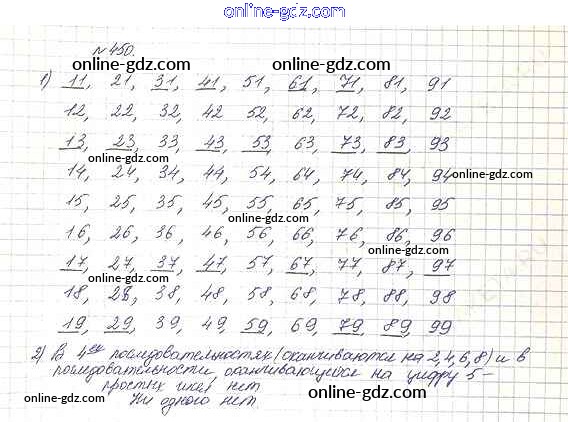 online-gdz.com
№450.
1) 11, 21, 31, 41, 51, 61, 71, 81, 91
online-gdz.com online-gdz.com online-gdz.com
12, 22, 32, 42 52, 62, 72, 82, 92
13, 23, 33, 43, 53, 63, 73, 83, 93
online-gdz.com online-gdz.com
14, 24, 34, 44, 54, 64, 74, 84, 94
online-gdz.com
15, 25, 35, 45, 55, 65, 75, 85, 95
online-gdz.com
16, 26, 36, 46, 56, 66, 76, 86, 96
online-gdz.com
17, 27, 37, 47, 57, 67, 77, 87, 97
online-gdz.com
18, 28, 38, 48, 58, 68, 78, 88, 98
online-gdz.com
19, 29, 39, 49, 59, 69, 79, 89, 99
2) В 4ех последовательностях (оканчиваются на 2, 4, 6, 8) и в
последовательности оканчивающейся на цифру 5 –
простых чисел нет
online-gdz.com
Ни одного нет